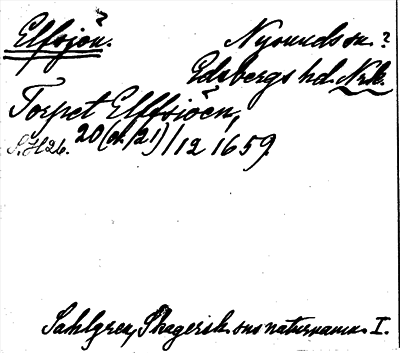 Elfsjön. Nysunds sn.?
Edsbergs hd. Nrk.
Torpet Elffsiöen,
S.H 26. 20 (ch. 21)/12 1659.
Sahlgren, Skagershs sns naturnamn I.